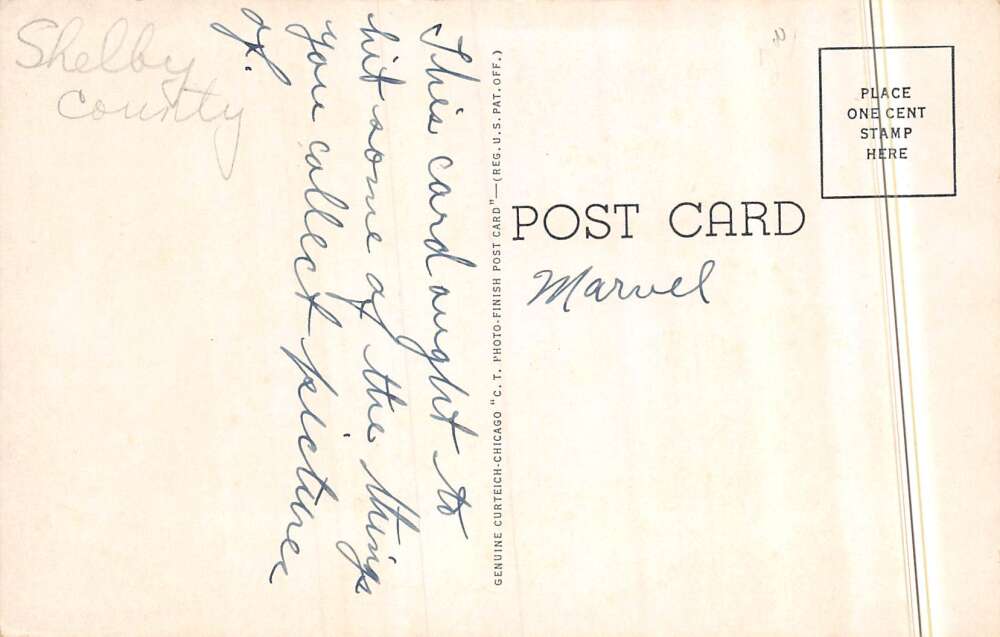 Shelby
County
This card aught to
hit some of the things
you collect pictures
of.
GENUINE CURTEICH-CHICAGO "C. T. PHOTO-FINISH POST CARD"—(REG. U. S. PAT. OFF.)
PLACE
ONE CENT
STAMP
HERE
POST CARD
Marvel